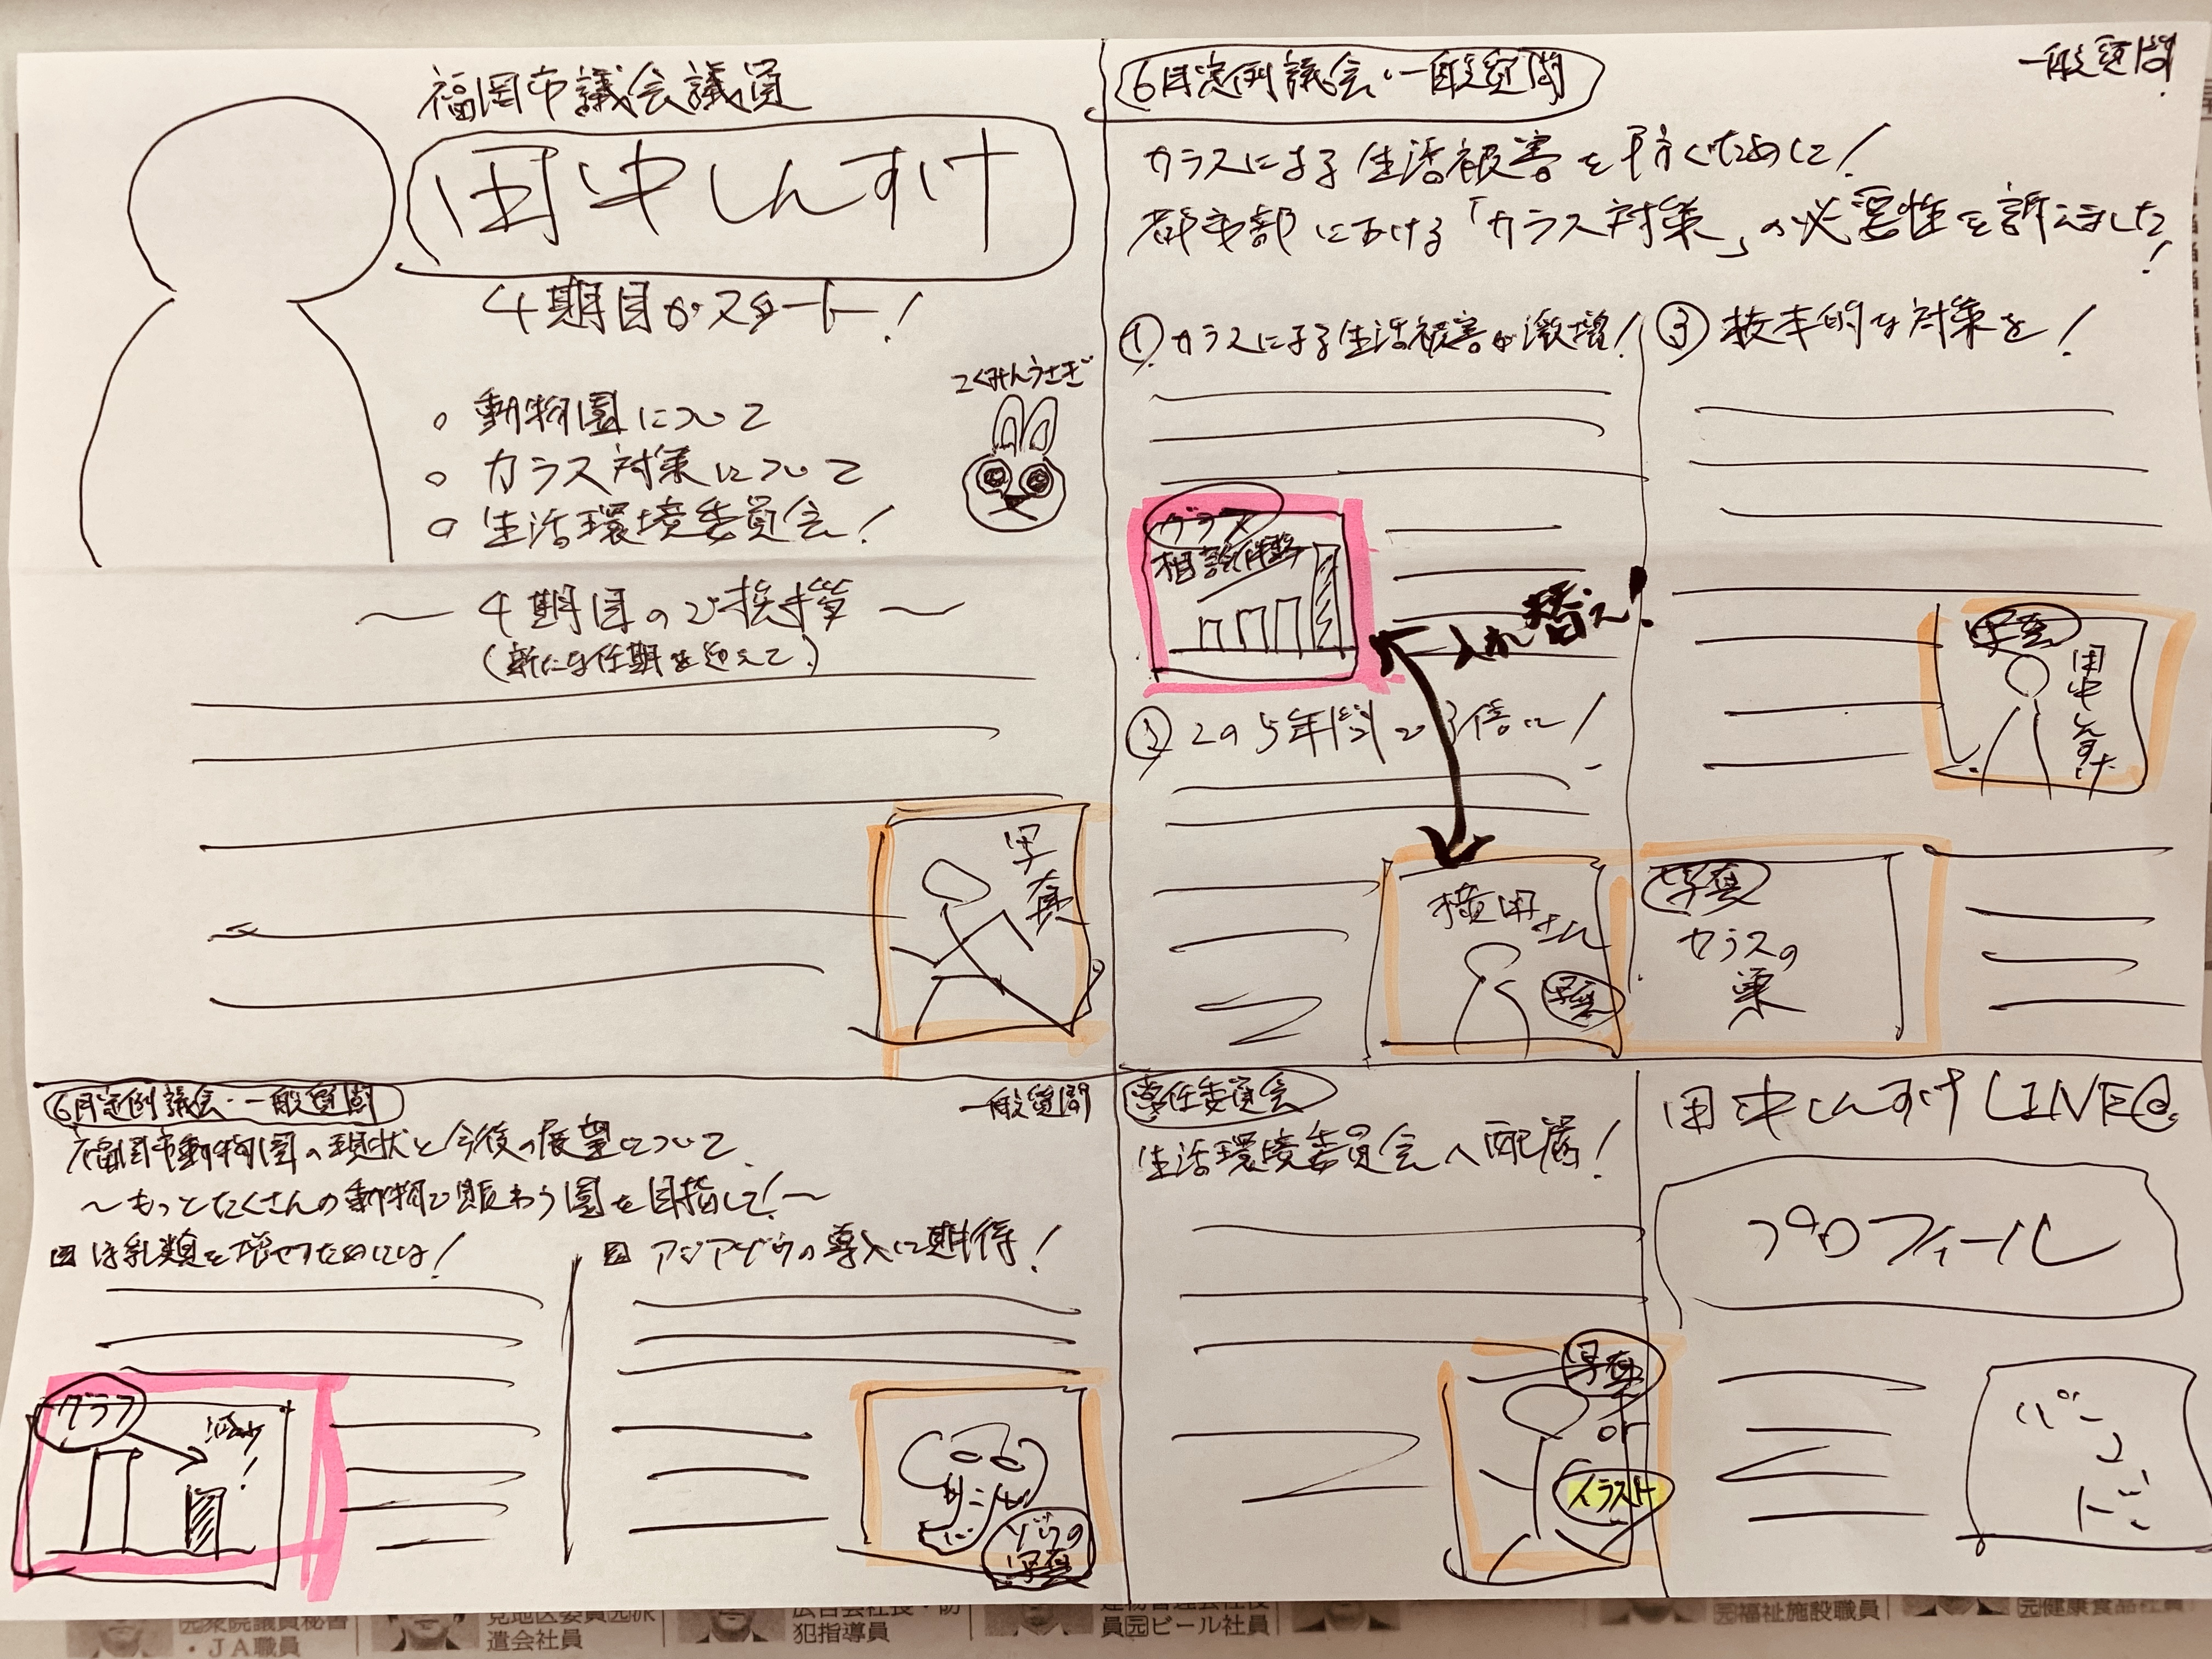 福岡市議会議員
田中しんすけ
4期目がスタート!
。動物園について
。カラス対策について
。生活環境委員会!
こくみんうさぎ
〜4期目のご挨拶〜
(新たな任期を迎えて)
写真
6月定例議会・一般質問
一般質問
カラスによる生活被害を防ぐために!
都市部における「カラス対策」の必要性を訴えました!
①カラスによる生活被害が激増!
グラフ
相談件数
入れ替え!
②この5年間で3倍に!
横田さん
写真
③抜本的な対策を!
写真
田中しんすけ
写真
カラスの
巣
6月定例議会・一般質問
一般質問
福岡市動物園の現状と今後の展望について
〜もっとたくさんの動物で賑わう園を目指して!〜
ほ乳類を増やすためには!
グラフ
減少!
アジアゾウの導入に期待!
ゾウの
写真
常任委員会
生活環境委員会へ配属!
写真
or
イラスト
田中しんすけLINE@
プロフィール
バーコード
元衆院議員秘書
・JA職員
遣会社員
犯指導員
員元ビール社員
元福祉施設職員
元健康食品社員